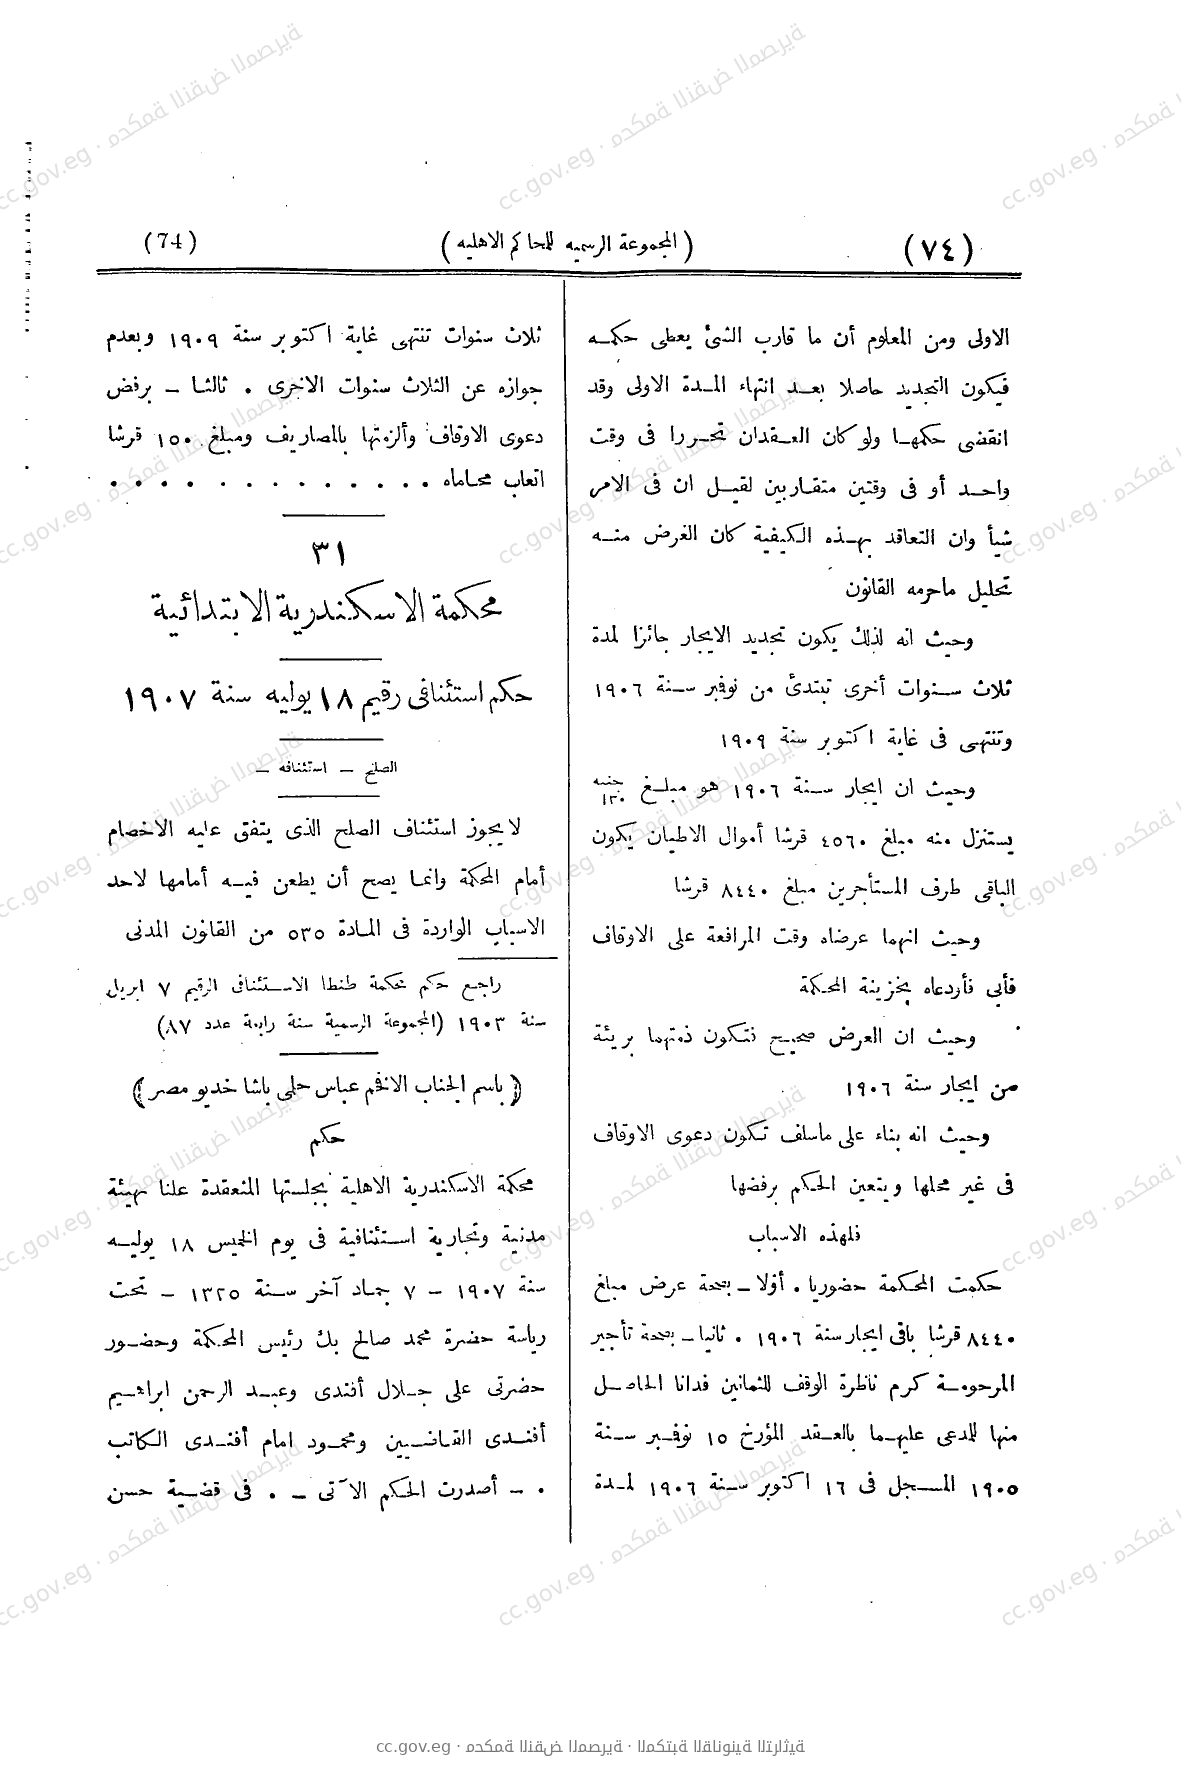 (٧٤)
(المجموعة الرسميه للمحاكم الاهليه)
(74)
الاولى ومن المعلوم أن ما قارب الشئ يعطى حكمه
فيكون التجديد حاصلا بعد انتهاء المدة الاولى وقد
انقضى حكمها ولو كان العقدان تحررا فى وقت
واحد أو فى وقتين متقاربين لقيل ان فى الامر
شيأ وان التعاقد بهذه الكيفية كان الغرض منه
تحليل ماحرمه القانون
وحيث انه لذلك يكون تجديد الايجار جائزا لمدة
ثلاث سنوات أخرى تبتدئ من نوفبر سنة ١٩٠٦
وتنتهى فى غاية اكتوبر سنة ١٩٠٩
وحيث ان ايجار سنة ١٩٠٦ هو مبلغ ١٣٠ جنيه
يستنزل منه مبلغ ٤٥٦٠ قرشا أموال الاطيان يكون
الباقى طرف المستأجرين مبلغ ٨٤٤٠ قرشا
وحيث انهما عرضاه وقت المرافعة على الاوقاف
فأبى فأردعاه بخزينة المحكمة
وحيث ان العرض صحيح فتكون ذمتهما بريئة
من ايجار سنة ١٩٠٦
وحيث انه بناء على ماسلف تكون دعوى الاوقاف
فى غير محلها ويتعين الحكم برفضها
فلهذه الاسباب
حكمت المحكمة حضوريا . أولا ــ بصحة عرض مبلغ
٨٤٤٠ قرشا باقى ايجار سنة ١٩٠٦ . ثانيا ــ بصحة تأجير
المرحومة كرم ناظرة الوقف للثمانين فدانا الحاصل
منها للمدعى عليهما بالعقد المؤرخ ١٥ نوفبر سنة
١٩٠٥ المسجل فى ١٦ اكتوبر سنة ١٩٠٦ لمدة
ثلاث سنوات تنتهى غاية اكتوبر سنة ١٩٠٩ وبعدم
جوازه عن الثلاث سنوات الاخرى . ثالثا ــ برفض
دعوى الاوقاف وألزمتها بالمصاريف ومبلغ ١٥٠ قرشا
اتعاب محاماه . . . . . . . . . . . . .
٣١
محكمة الاسكندرية الابتدائية
حكم استئنافى رقيم ١٨ يوليه سنة ١٩٠٧
الصلح ــ استئنافه ــ
لا يجوز استئناف الصلح الذى يتفق عليه الاخصام
أمام المحكمة وانما يصح أن يطعن فيه أمامها لاحد
الاسباب الواردة فى المادة ٥٣٥ من القانون المدنى
راجع حكم محكمة طنطا الاستئنافى الرقيم ٧ ابريل
سنة ١٩٠٣ (المجموعة الرسمية سنة رابعة عدد ٨٧)
(باسم الجناب الافخم عباس حلمى باشا خديو مصر)
حكم
محكمة الاسكندرية الاهلية بجلستها المنعقدة علنا بهيئة
مدنية وتجارية استئنافية فى يوم الخميس ١٨ يوليه
سنة ١٩٠٧ ــ ٧ جماد آخر سنة ١٣٢٥ ــ تحت
رياسة حضرة محمد صالح بك رئيس المحكمة وحضور
حضرتى على جلال أفندى وعبد الرحمن ابراهيم
أفندى القاضيين ومحمود امام أفندى الكاتب
. ــ أصدرت الحكم الآتى ــ . فى قضية حسن
cc.gov.eg · محكمة النقض المصرية · المكتبة القانونية التراثية